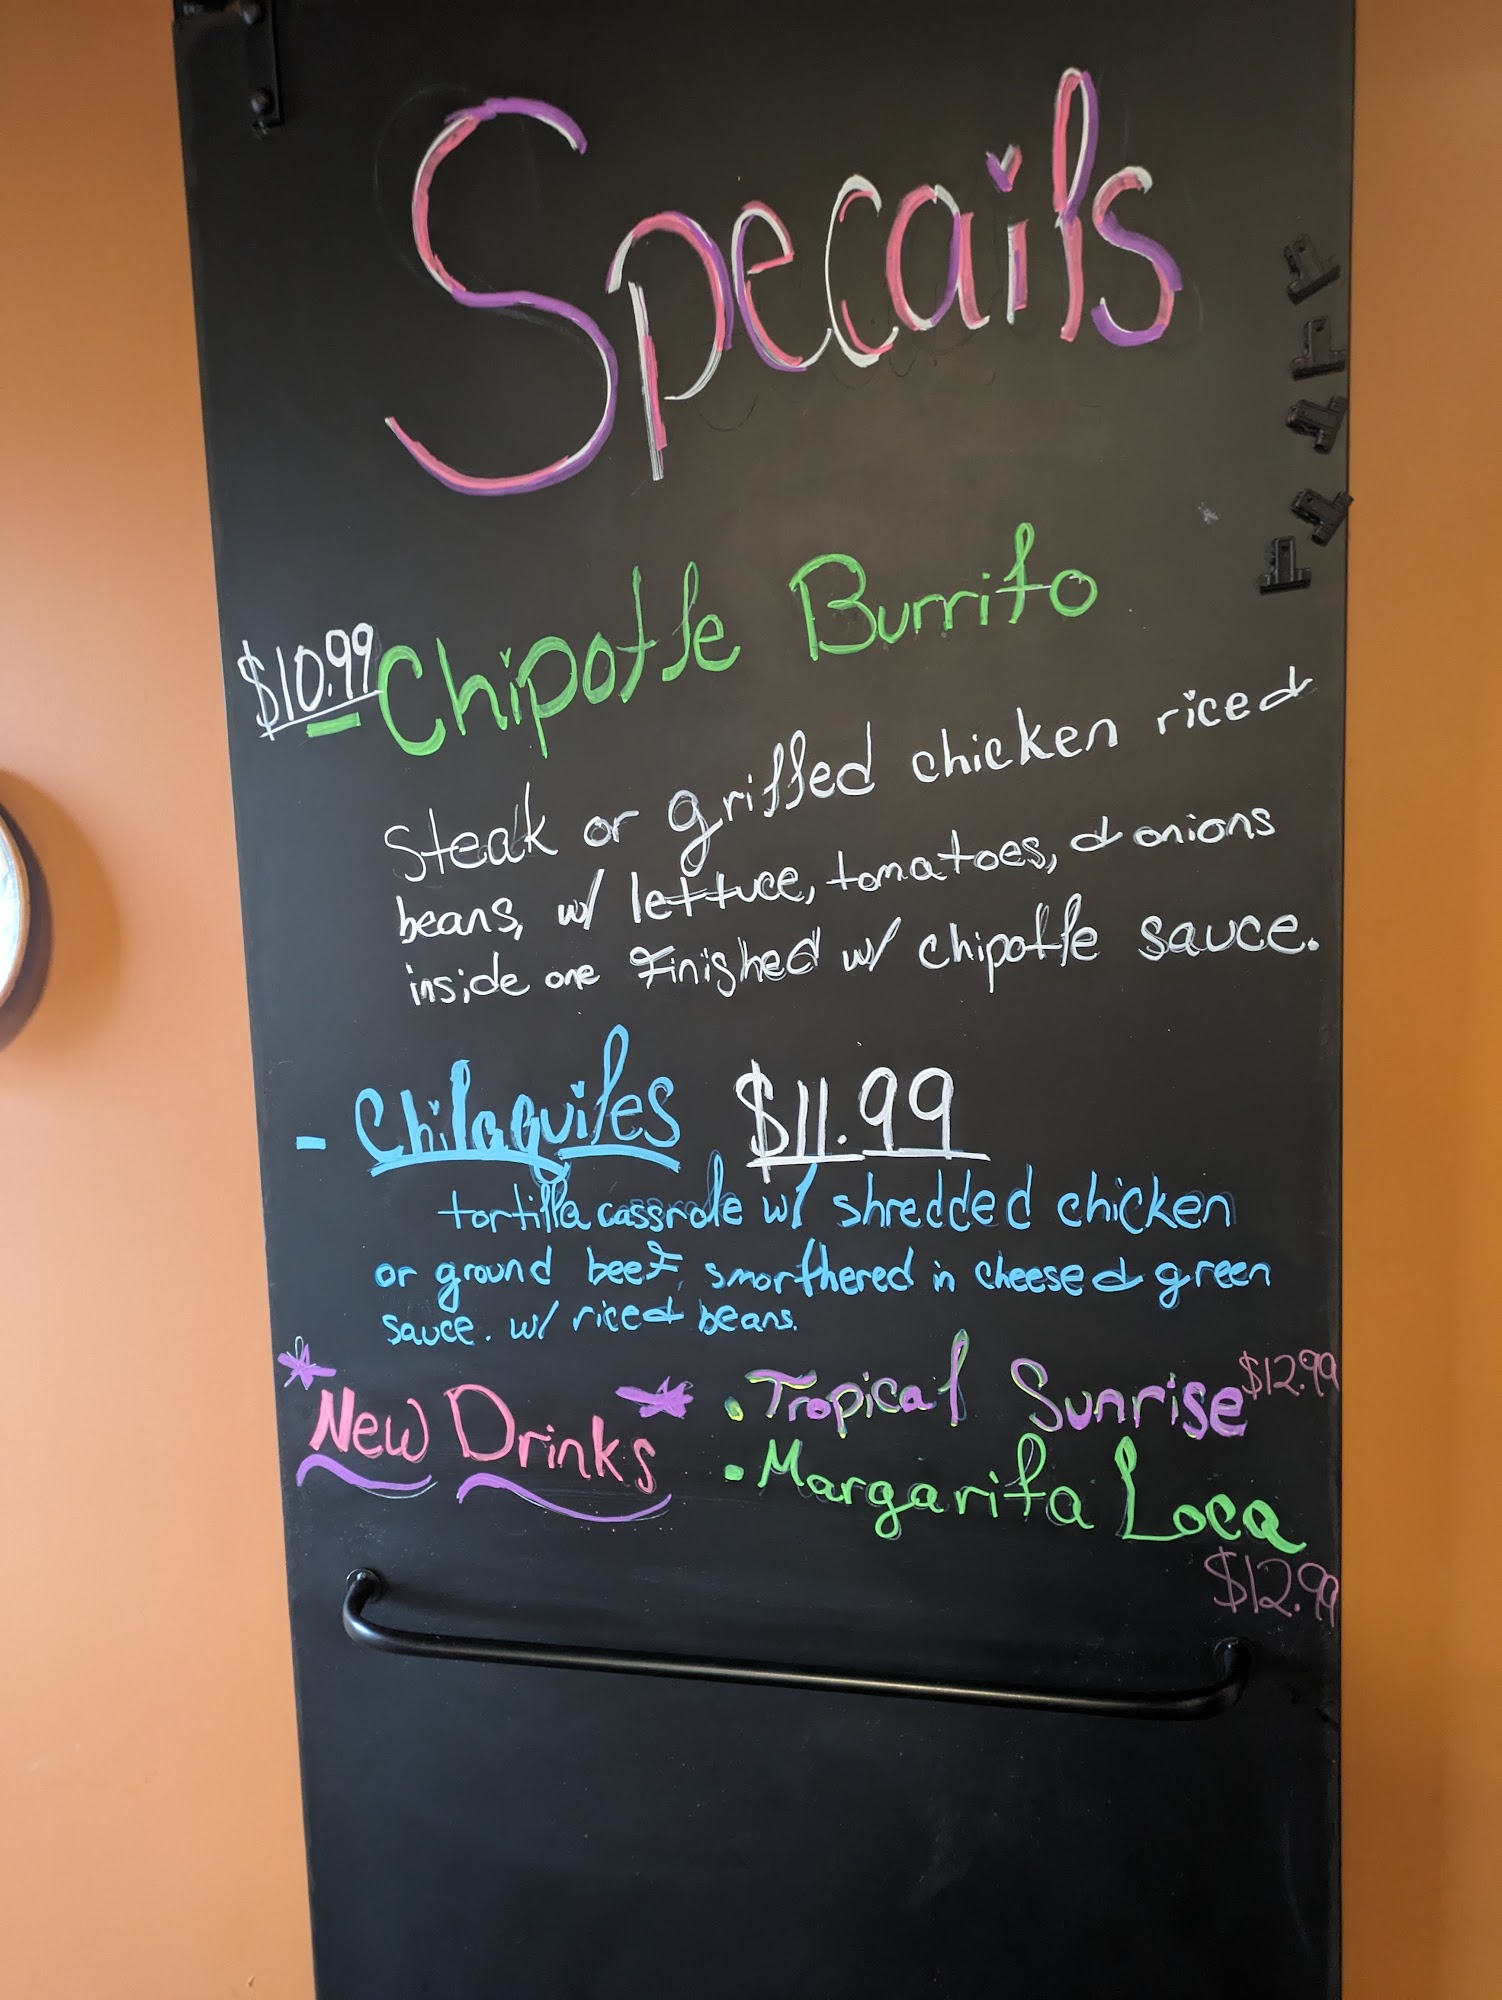 Specails
$10.99
- Chipotle Burrito
Steak or grilled chicken rice &
beans, w/ lettuce, tomatoes, & onions
inside one Finished w/ chipotle sauce.
- Chilaquiles $11.99
tortilla cassrole w/ shredded chicken
or ground beef, smorthered in cheese & green
sauce. w/ rice & beans.
New Drinks
• Tropical Sunrise $12.99
• Margarita Loca
$12.99